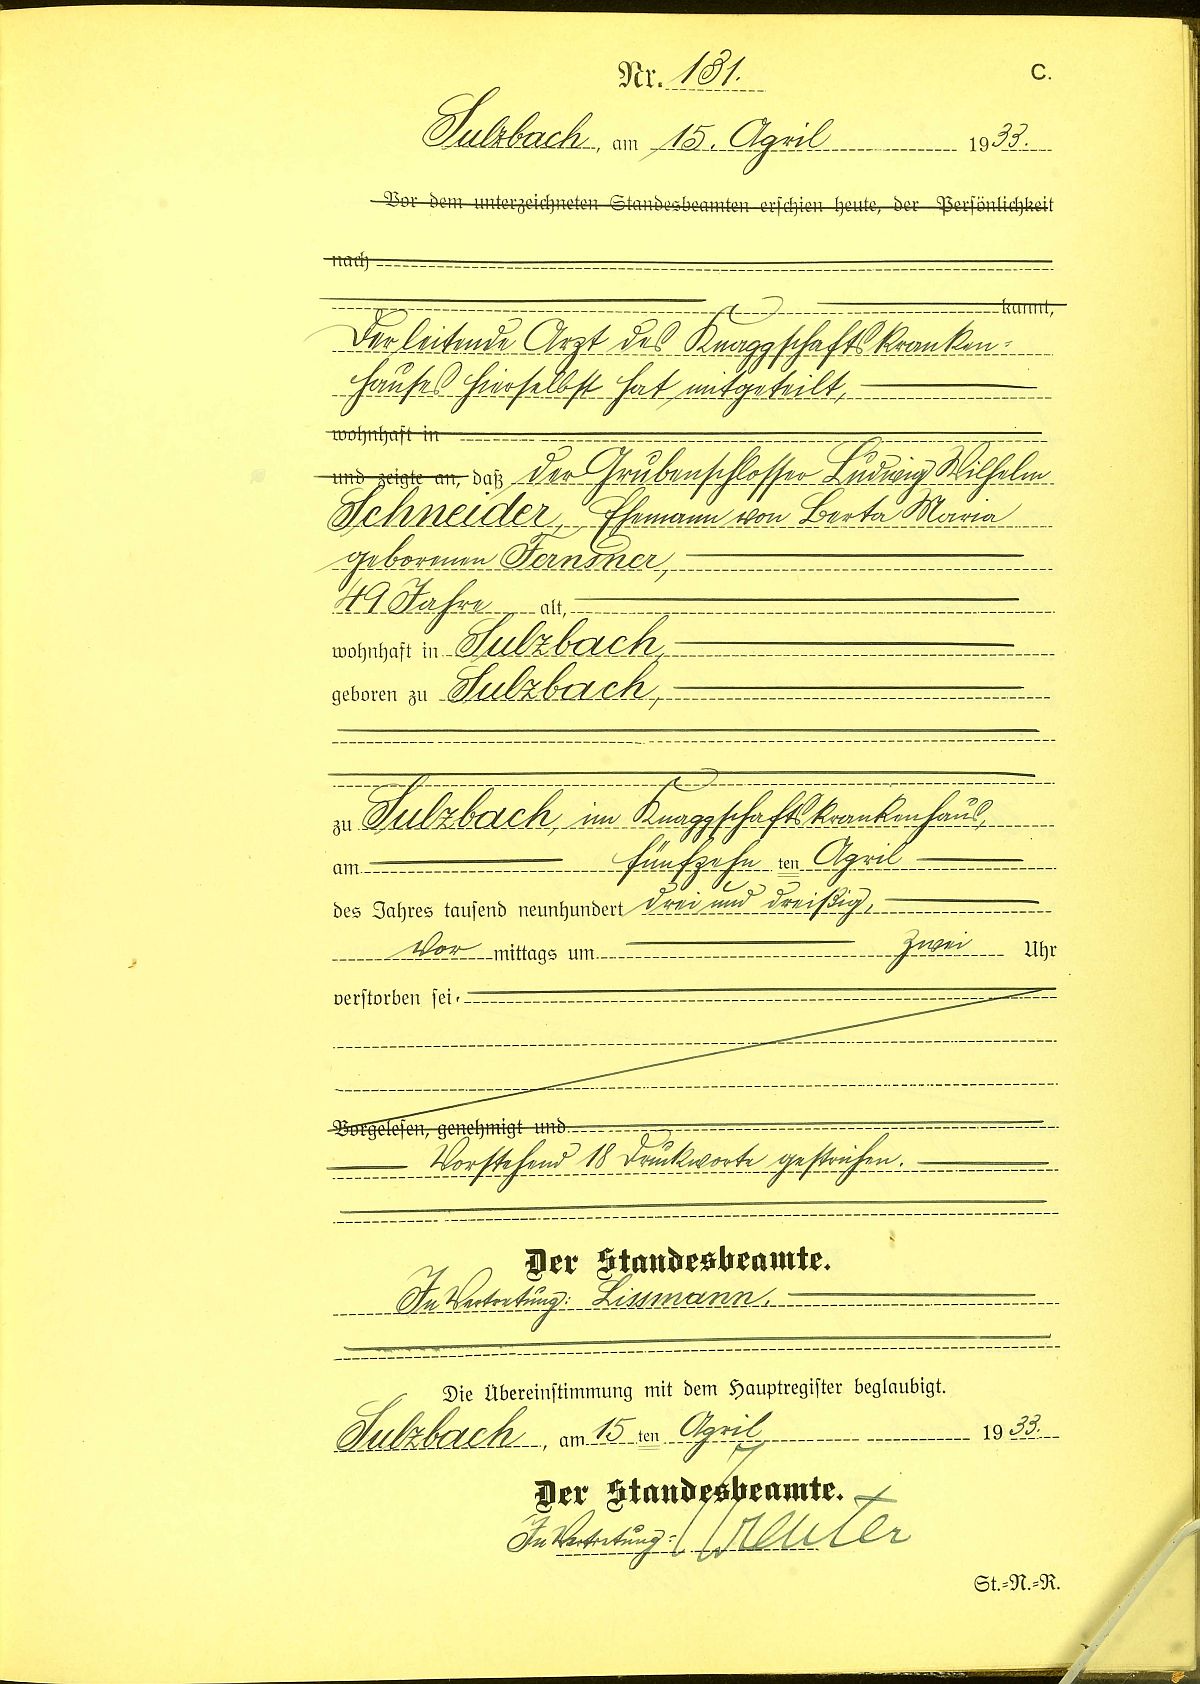 Nr. 131.
C.
Sulzbach, am 15. April 1933.
Vor dem unterzeichneten Standesbeamten erschien heute, der Persönlichkeit
nach
kannt,
Der leitende Arzt des Knappschaftskranken-
hauses hierselbst hat mitgeteilt,
wohnhaft in
und zeigte an, daß der Grubenschlosser Ludwig Wilhelm
Schneider, Ehemann von Berta Maria
geborenen
49 Jahre alt,
wohnhaft in Sulzbach,
geboren zu Sulzbach,
zu Sulzbach, im Knappschaftskrankenhaus,
am fünfzehnten April
des Jahres tausend neunhundert drei und dreißig,
Vor mittags um zwei Uhr
verstorben sei.
Vorgelesen, genehmigt und
Vorstehend 18 Druckworte gestrichen.
Der Standesbeamte.
In Vertretung: Lissmann.
Die Übereinstimmung mit dem Hauptregister beglaubigt.
Sulzbach, am 15 ten April 1933.
Der Standesbeamte.
In Vertretung:
St.=N.=R.